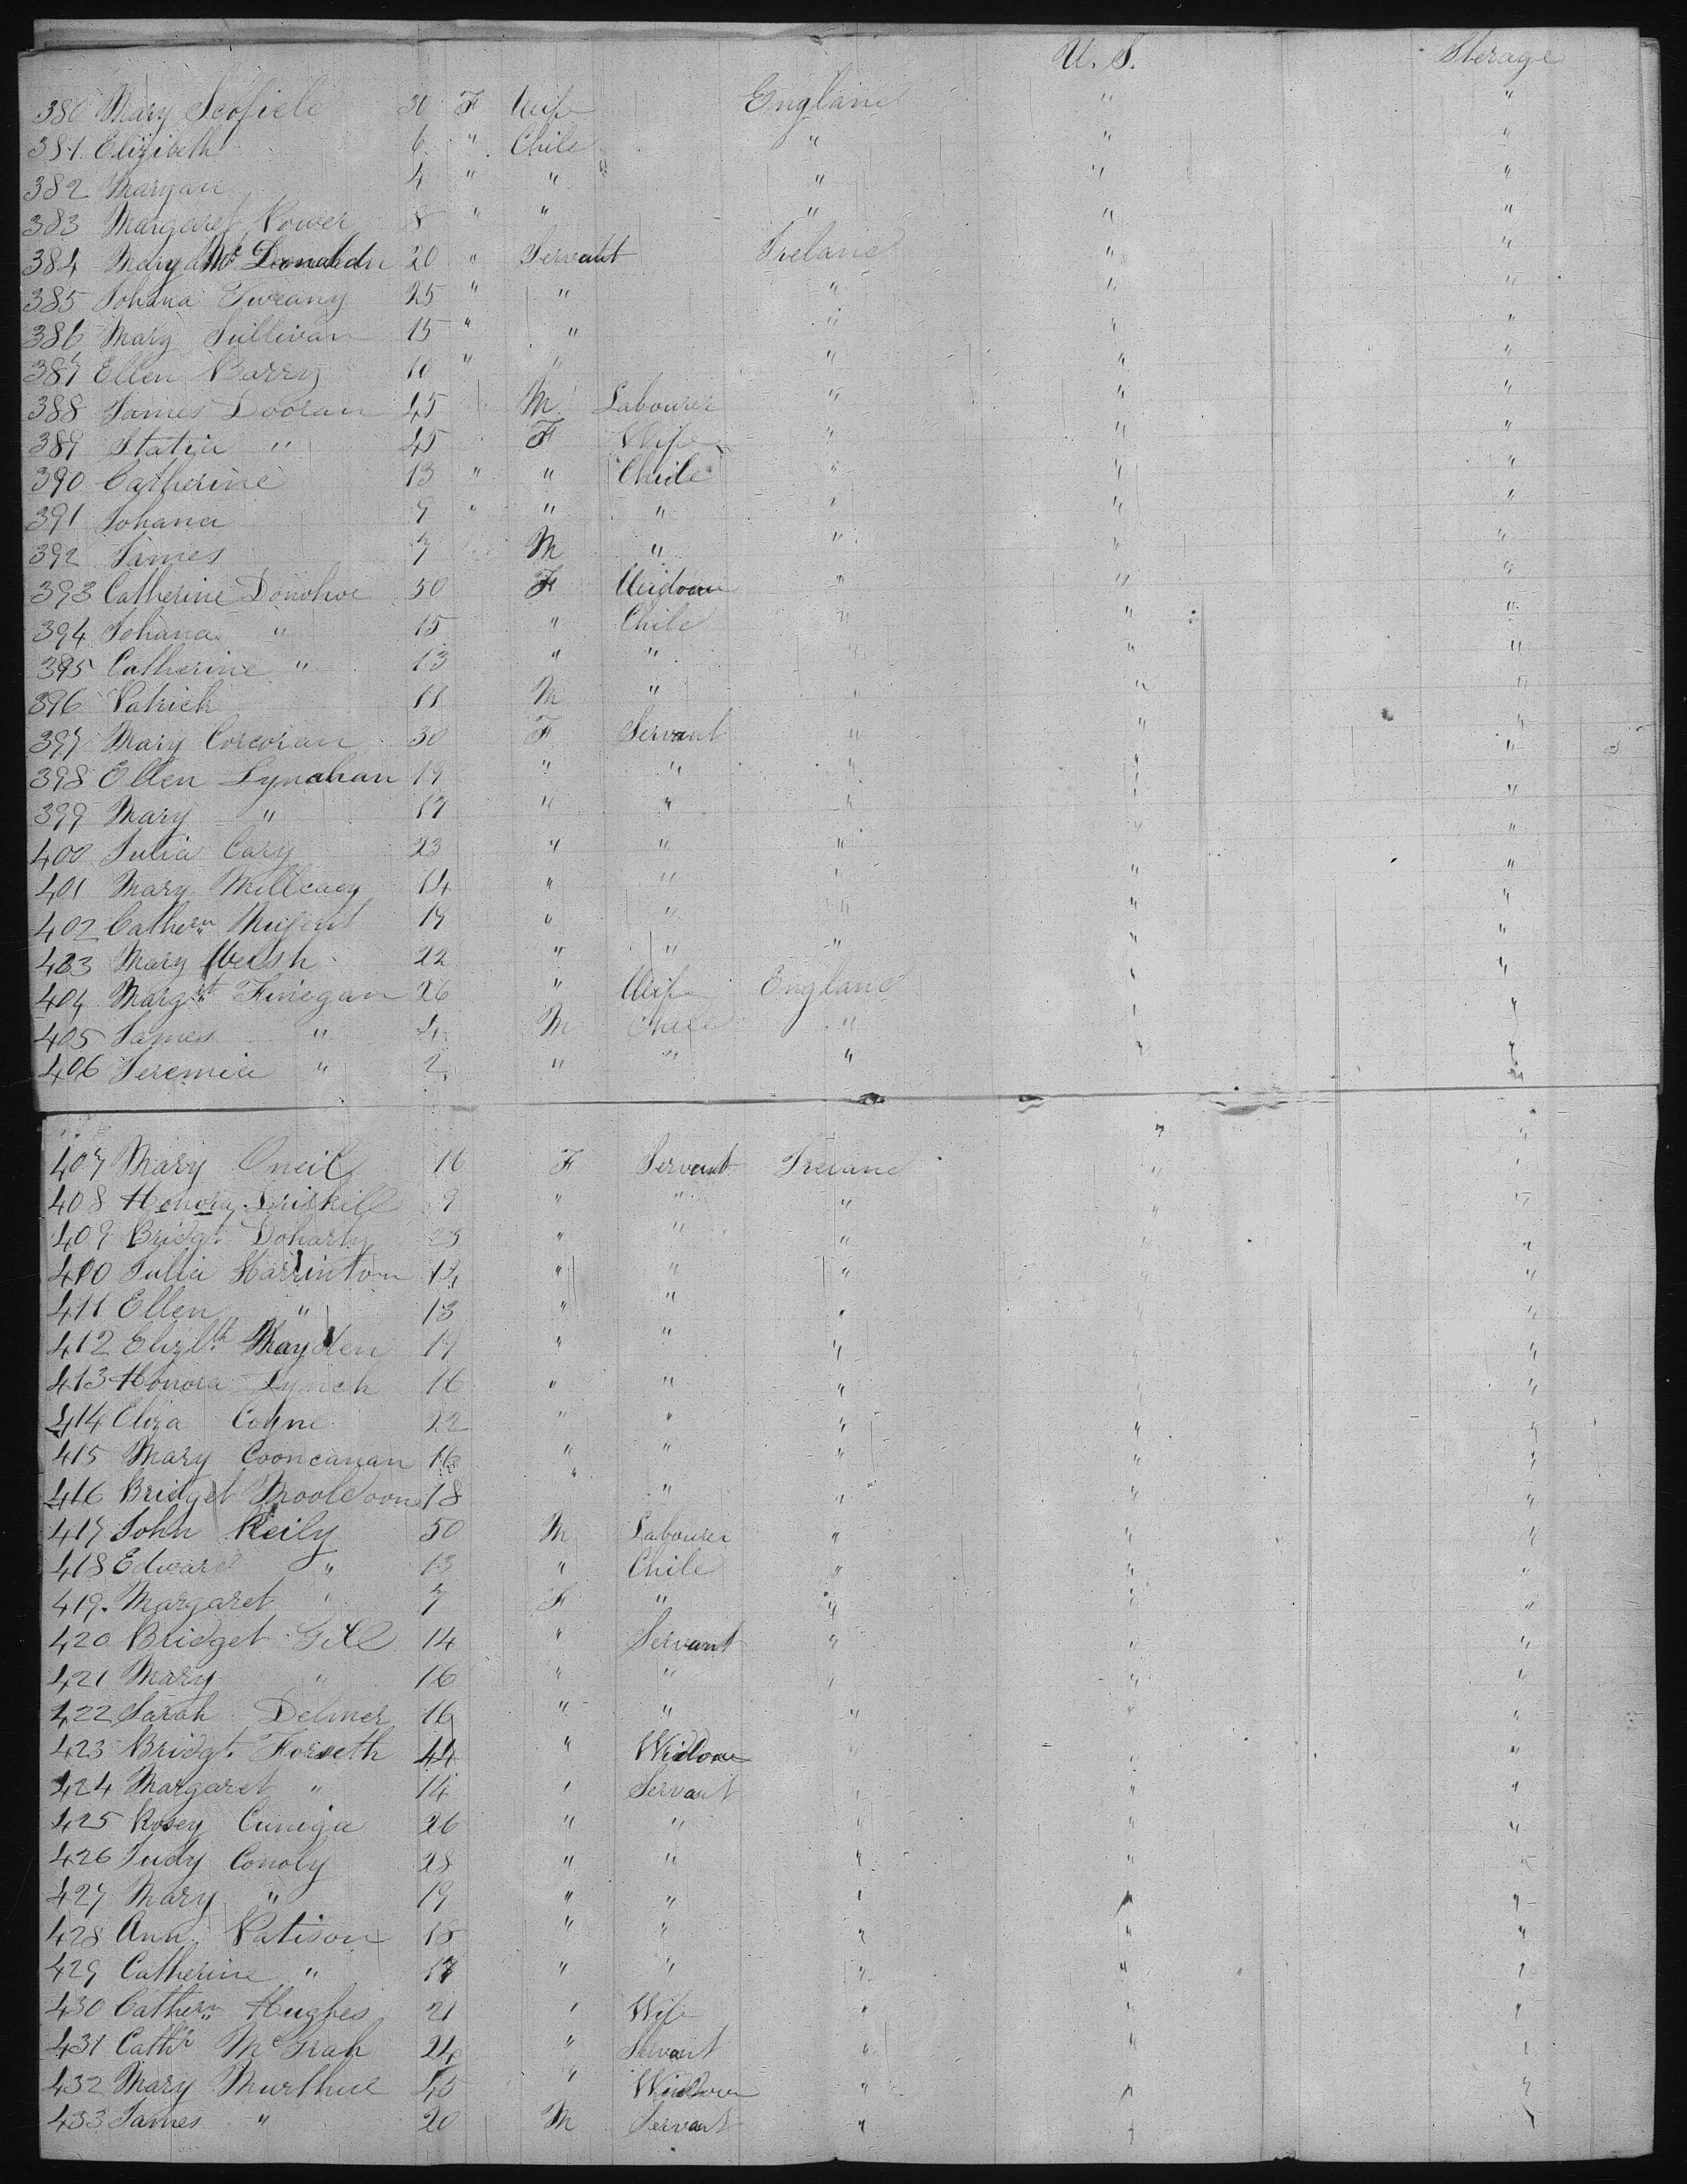 U. S. Sterage
380 Mary Scofield 30 F Wife England " "
381 Elizibeth 6 " Child " " "
382 Maryan 4 " " " " "
383 Margaret Power 8 " " " " "
384 Mary Mc 20 " Servant Ireland " "
385 Johana 25 " " " " "
386 Mary Sullivan 15 " " " " "
387 Ellen Barry 10 " " " " "
388 James Dooran 45 M Labourer " " "
389 Statia " 45 F Wife " " "
390 Catherine 13 " " Child " " "
391 Johana 9 " " " " " "
392 James 7 M " " " "
393 Catherine Donohoe 50 F Widow " " "
394 Johana " 15 " Child " " "
395 Catherine " 13 " " " " "
396 Patrick 11 M " " " "
397 Mary Corcoran 30 F Servant " " "
398 Ellen Lynahan 19 " " " " "
399 Mary " 17 " " " " "
400 Julia Cary 23 " " " " "
401 Mary 14 " " " " "
402 Cathern Nugent 19 " " " " "
403 Mary Welsh 22 " " " " "
404 Margrt Finegan 26 " Wife England " "
405 James " 4 M Child " " "
406 Jeremia " 2 " " " " "
407 Mary Oneil 16 F Servant Ireland " "
408 Honora Driskill 9 " " " " "
409 Bridgt Doharty 23 " " " " "
410 Julia Harrinton 14 " " " " "
411 Ellen " 13 " " " " "
412 Elizbth 19 " " " " "
413 Honora Lynch 16 " " " " "
414 Eliza Coyne 22 " " " " "
415 Mary Cooncanan 16 " " " " "
416 Bridget Mooldoone 18 " " " " "
417 John Reily 50 M Labourer " " "
418 Edward " 13 " Child " " "
419. Margaret " 7 F " " " "
420 Bridget Gill 14 " Servant " " "
421 Mary " 16 " " " " "
422 Sarah Delmer 16 " " " " "
423 Bridgt. Forseth 44 " Widow " " "
424 Margaret " 14 " Servant " " "
425 Rosey Cuniga 26 " " " " "
426 Judy Conoly 28 " " " " "
427 Mary " 19 " " " " "
428 Ann Patison 18 " " " " "
429 Catherine " 17 " " " " "
430 Cathern Hughes 21 " Wife " " "
431 Cathr McGrah 24 " Servant " " "
432 Mary Murthue 45 " Widow " " "
433 James " 20 M Servant " " "